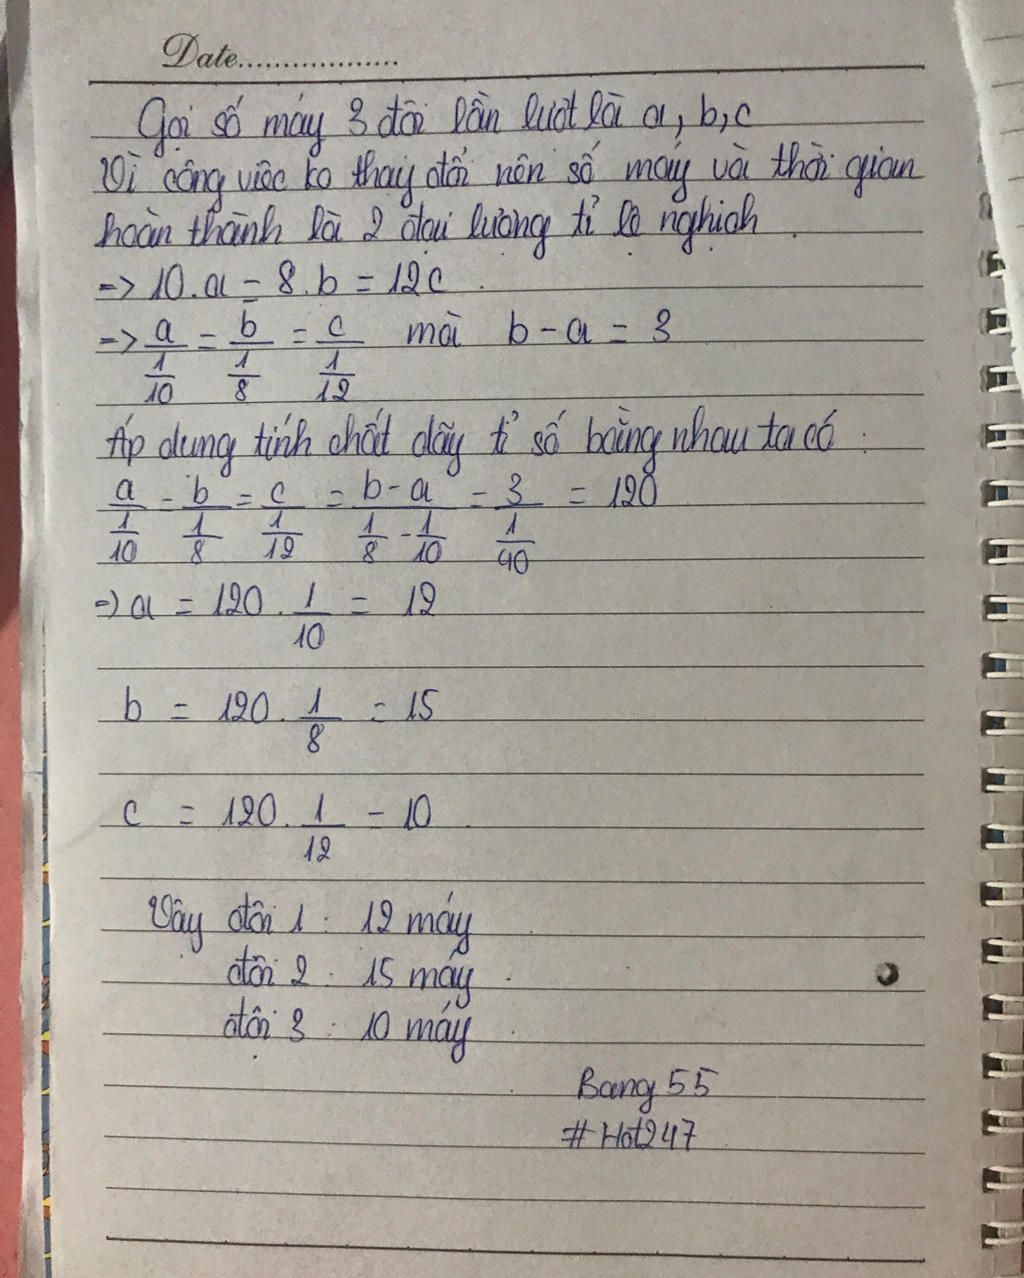 Date..................
Gọi số máy 3 đội lần lượt là a, b, c
Vì công việc ko thay đổi nên số máy và thời gian
hoàn thành là 2 đại lượng tỉ lệ nghịch.
=> 10.a = 8.b = 12c.
=> a/(1/10) = b/(1/8) = c/(1/12) mà b - a = 3
Áp dụng tính chất dãy tỉ số bằng nhau ta có:
a/(1/10) = b/(1/8) = c/(1/12) = (b - a)/(1/8 - 1/10) = 3/(1/40) = 120
=> a = 120 . 1/10 = 12
b = 120 . 1/8 = 15
c = 120 . 1/12 = 10
Vậy đội 1 : 12 máy
đội 2 : 15 máy.
đội 3 : 10 máy.
Bang55
#Hot247